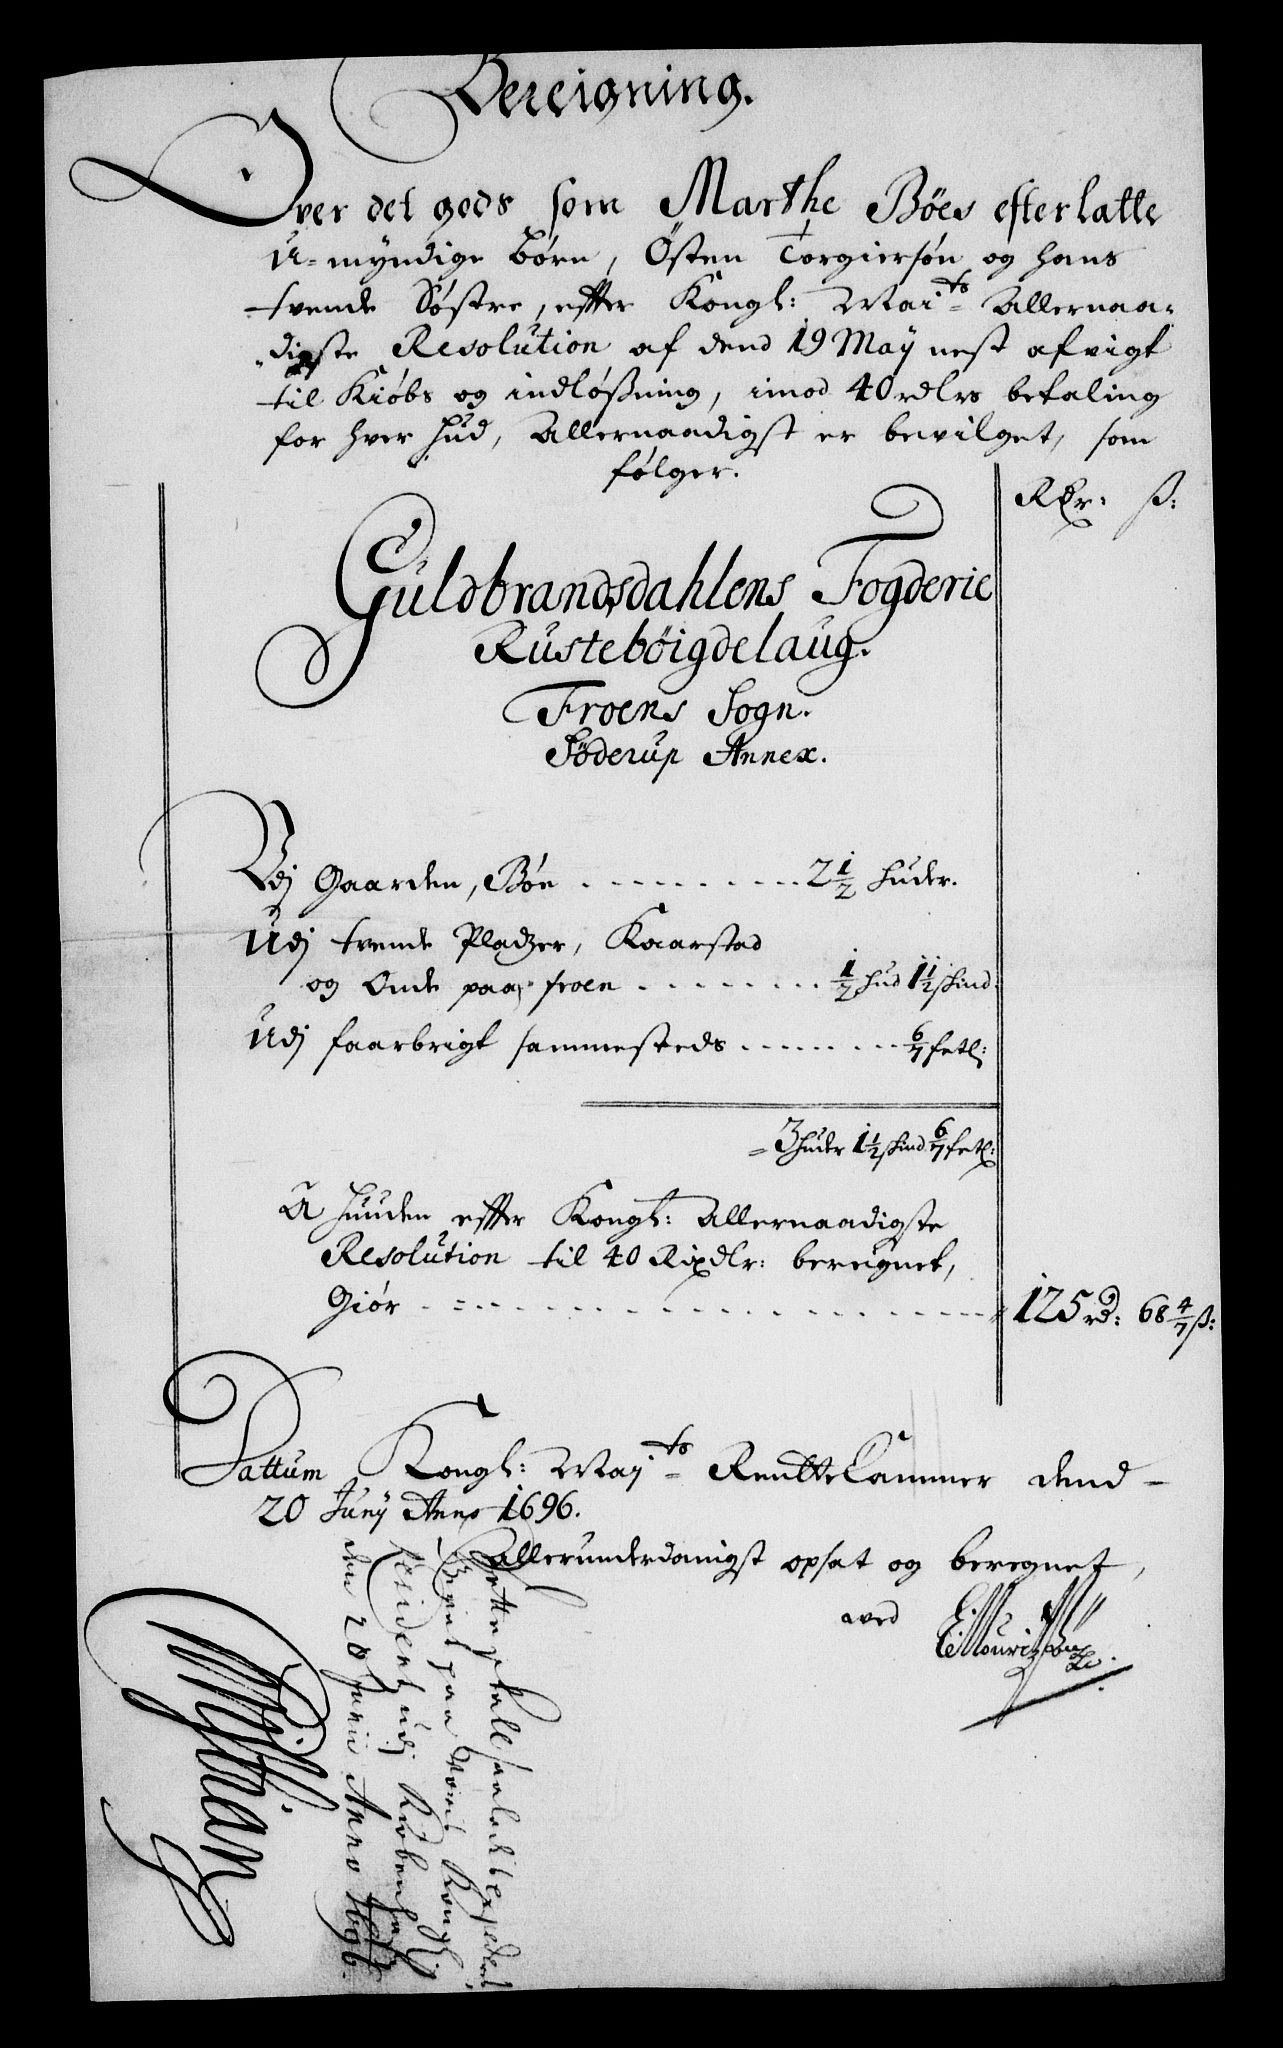 Bereigning.
Over det gods som Marthe Böes efterlatte
U-myndige børn, Östen Torgiersøn og hans
tvende Søstre, effter Kongl: Maits Allernaa-
digste Resolution af dend 19 Maÿ nest afvigt
til Kiøbs og indløßning, imod 40 rdlrs betaling
for hver Hud, Allernaadigst er bevilget, som
følger.
Rdr: ß:
Guldbrandsdahlens Fogderie
Rustebøigdelaug.
Froens Sogn.
Söderup Annex.
Udj Gaarden, Böe . . . . . . . . . . 2 1/2 huder.
Udj tvende Pladzer, Kaarstad
og Onde paa froen . . . . . . . . 1/2 hud 1 1/2 skind.
Udj faarbrigt sammesteds . . . . . . . 6/7 fetl:
= 3 huder 1 1/2 skind 6/7 fetl:
A Huuden effter Kongl: Allernaadigste
Resolution til 40 Rixdlr: bereignet,
Giør . . . . . . . . . . . . . . . . . 125 rd: 68 4/7 ß:
Dattum Kongl: Maÿts Rentte Cammer dend
20 Junÿ Anno 1696.
Allerunderdanigst opsat og beregnet,
ved
Dette skall saaledes expederis
Givet paa Voris Kongl:
Residentz udj Kiøbenhafn
den 20 Junii Anno 1696.